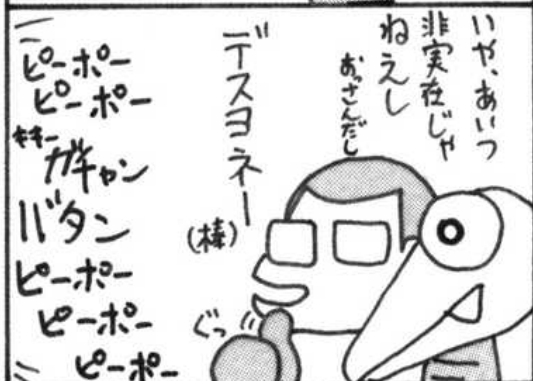 いや、あいつ
非実在じゃ
ねえし
おっさんだし
デスヨネー
(棒)
ぐっ
ピーポー
ピーポー
キキー
ガチャン
バタン
ピーポー
ピーポー
ピーポー